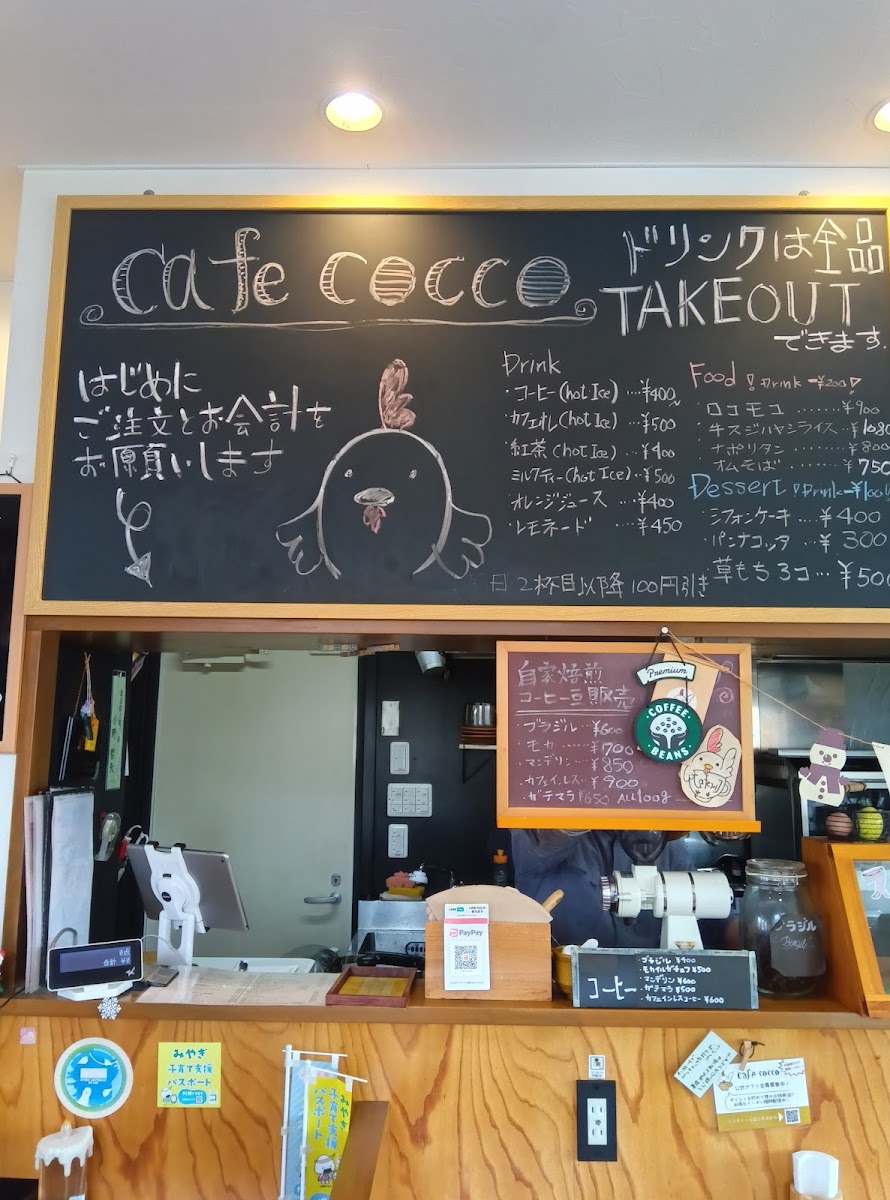 cafe cocco
ドリンクは全品
TAKEOUT
できます.
はじめに
ご注文とお会計を
お願いします
Drink
・コーヒー(hot Ice)…¥400~
・カフェオレ(hot Ice)…¥500
・紅茶(hot Ice)…¥400
・ミルクティー(hot Ice)…¥500
・オレンジジュース…¥400
・レモネード…¥450
日 2杯目以降100円引き
Food ! Drink -¥200!
・ロコモコ……¥900
・牛スジハヤシライス…¥1080
・ナポリタン……¥800
・オムそば……¥750
Dessert ! Drink -¥100
・シフォンケーキ…¥400
・パンナコッタ…¥300
・草もち3コ…¥500
自家焙煎
コーヒー豆販売
・ブラジル…¥600
・モカ……¥700
・マンデリン…¥850
・カフェインレス…¥900
・ガテマラ¥650 ALL100g
Premium
COFFEE
BEANS
PayPay
ブラジル
コーヒー
・ブラジル ¥400
・モカイルガチェフ ¥500
・マンデリン ¥600
・ガテマラ ¥500
・カフェインレスコーヒー ¥600
みやぎ
子育て支援
パスポート
みやぎ
子育て支援
パスポート
cafe cocco